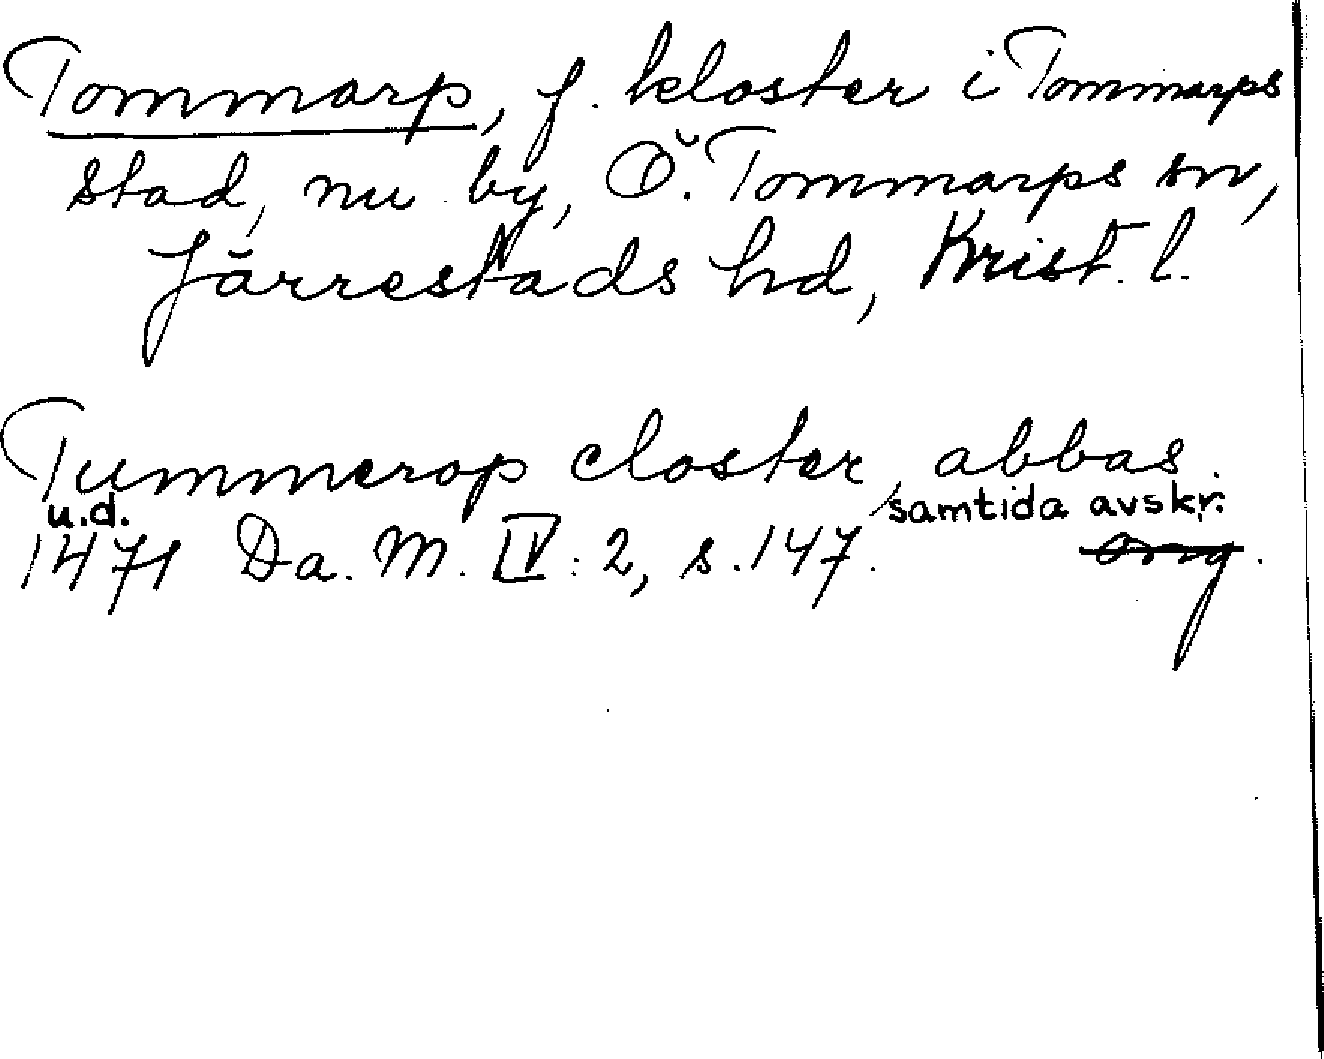 Tommarp, f. kloster i Tommarps
stad, nu by, Ö. Tommarps sn,
Järrestads hd, Krist. l.
Tummerop closter, abbas.
u.d. samtida avskr.
1471 Da. M. IV: 2, s. 147. orig.